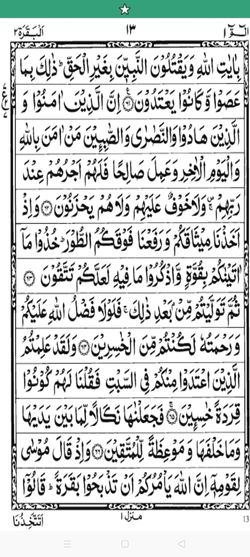 الٓمّٓ ١ ١٣ اَلْبَقَرَة ٢
بِاٰيٰتِ اللّٰهِ وَيَقْتُلُوْنَ النَّبِيّٖنَ بِغَيْرِ الْحَقِّ ؕ ذٰلِكَ بِمَا
عَصَوْا وَّكَانُوْا يَعْتَدُوْنَ ﴿٦١﴾ اِنَّ الَّذِيْنَ اٰمَنُوْا وَ
الَّذِيْنَ هَادُوْا وَالنَّصٰرٰى وَالصّٰبِـِٕيْنَ مَنْ اٰمَنَ بِاللّٰهِ
وَالْيَوْمِ الْاٰخِرِ وَعَمِلَ صَالِحًا فَلَهُمْ اَجْرُهُمْ عِنْدَ
رَبِّهِمْ ۚ وَلَا خَوْفٌ عَلَيْهِمْ وَلَا هُمْ يَحْزَنُوْنَ ﴿٦٢﴾ وَاِذْ
اَخَذْنَا مِيْثَاقَكُمْ وَرَفَعْنَا فَوْقَكُمُ الطُّوْرَ ؕ خُذُوْا مَاۤ
اٰتَيْنٰكُمْ بِقُوَّةٍ وَّاذْكُرُوْا مَا فِيْهِ لَعَلَّكُمْ تَتَّقُوْنَ ﴿٦٣﴾
ثُمَّ تَوَلَّيْتُمْ مِّنْۢ بَعْدِ ذٰلِكَ ۚ فَلَوْلَا فَضْلُ اللّٰهِ عَلَيْكُمْ
وَرَحْمَتُهٗ لَكُنْتُمْ مِّنَ الْخٰسِرِيْنَ ﴿٦٤﴾ وَلَقَدْ عَلِمْتُمُ
الَّذِيْنَ اعْتَدَوْا مِنْكُمْ فِى السَّبْتِ فَقُلْنَا لَهُمْ كُوْنُوْا
قِرَدَةً خٰسِـِٕيْنَ ﴿٦٥﴾ فَجَعَلْنٰهَا نَكَالًا لِّمَا بَيْنَ يَدَيْهَا
وَمَا خَلْفَهَا وَمَوْعِظَةً لِّلْمُتَّقِيْنَ ﴿٦٦﴾ وَاِذْ قَالَ مُوْسٰى
لِقَوْمِهٖۤ اِنَّ اللّٰهَ يَاْمُرُكُمْ اَنْ تَذْبَحُوْا بَقَرَةً ؕ قَالُوْۤا
اَتَتَّخِذُنَا منزل ١ 13